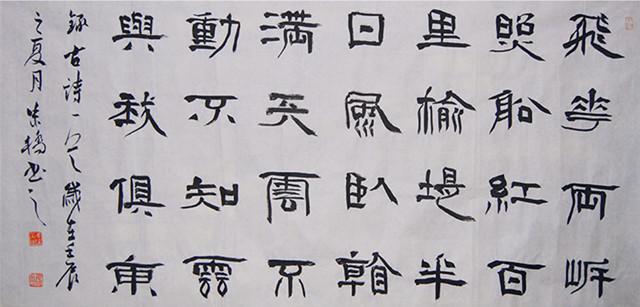 飛花兩岸
照船紅百
里榆堤半
日風臥看
滿天雲不
動不知雲
與我俱東
錄古詩一首歲在壬辰
之夏月書之